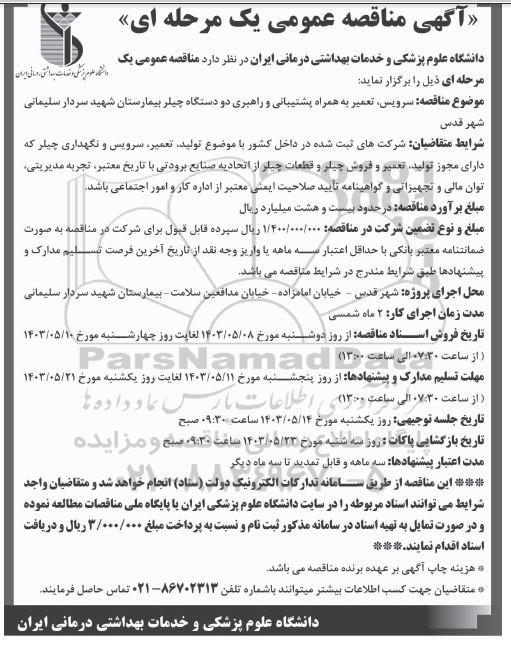 «آگهی مناقصه عمومی یک مرحله ای»
دانشگاه علوم پزشکی و خدمات بهداشتی، درمانی ایران
دانشگاه علوم پزشکی و خدمات بهداشتی درمانی ایران در نظر دارد مناقصه عمومی یک
مرحله ای ذیل را برگزار نماید:
موضوع مناقصه: سرویس، تعمیر به همراه پشتیبانی و راهبری دو دستگاه چیلر بیمارستان شهید سردار سلیمانی
شهر قدس
شرایط متقاضیان: شرکت های ثبت شده در داخل کشور با موضوع تولید، تعمیر، سرویس و نگهداری چیلر که
دارای مجوز تولید، تعمیر و فروش چیلر و قطعات چیلر از اتحادیه صنایع برودتی با تاریخ معتبر، تجربه مدیریتی،
توان مالی و تجهیزاتی و گواهینامه تأیید صلاحیت ایمنی معتبر از اداره کار و امور اجتماعی باشد.
مبلغ برآورد مناقصه: در حدود بیست و هشت میلیارد ریال
مبلغ و نوع تضمین شرکت در مناقصه: ۱/۴۰۰/۰۰۰/۰۰۰ ریال سپرده قابل قبول برای شرکت در مناقصه به صورت
ضمانتنامه معتبر بانکی با حداقل اعتبار سه ماهه یا واریز وجه نقد از تاریخ آخرین فرصت تسلیم مدارک و
پیشنهادها طبق شرایط مندرج در شرایط مناقصه می باشد.
محل اجرای پروژه: شهر قدس - خیابان امامزاده- خیابان مدافعین سلامت- بیمارستان شهید سردار سلیمانی
مدت زمان اجرای کار: ۲ ماه شمسی
تاریخ فروش اسناد مناقصه: از روز دوشنبه مورخ ۱۴۰۳/۰۵/۰۸ لغایت روز چهارشنبه مورخ ۱۴۰۳/۰۵/۱۰
( از ساعت ۰۷:۳۰ الی ساعت ۱۳:۰۰)
مهلت تسلیم مدارک و پیشنهادها: از روز پنجشنبه مورخ ۱۴۰۳/۰۵/۱۱ لغایت روز یکشنبه مورخ ۱۴۰۳/۰۵/۲۱
( از ساعت ۰۷:۳۰ الی ساعت ۱۳:۰۰)
تاریخ جلسه توجیهی: روز یکشنبه مورخ ۱۴۰۳/۰۵/۱۴ ساعت ۰۹:۳۰ صبح
تاریخ بازگشایی پاکات : روز سه شنبه مورخ ۱۴۰۳/۰۵/۲۳ ساعت ۰۹:۳۰ صبح
مدت اعتبار پیشنهادها: سه ماهه و قابل تمدید تا سه ماه دیگر
*** این مناقصه از طریق سامانه تدارکات الکترونیک دولت (ستاد) انجام خواهد شد و متقاضیان واجد
شرایط می توانند اسناد مربوطه را در سایت دانشگاه علوم پزشکی ایران یا پایگاه ملی مناقصات مطالعه نموده
و در صورت تمایل به تهیه اسناد در سامانه مذکور ثبت نام و نسبت به پرداخت مبلغ ۳/۰۰۰/۰۰۰ ریال و دریافت
اسناد اقدام نمایند.***
* هزینه چاپ آگهی بر عهده برنده مناقصه می باشد.
* متقاضیان جهت کسب اطلاعات بیشتر میتوانند باشماره تلفن ۸۶۷۰۲۳۱۳-۰۲۱ تماس حاصل فرمایند.
دانشگاه علوم پزشکی و خدمات بهداشتی درمانی ایران
ParsNamadData